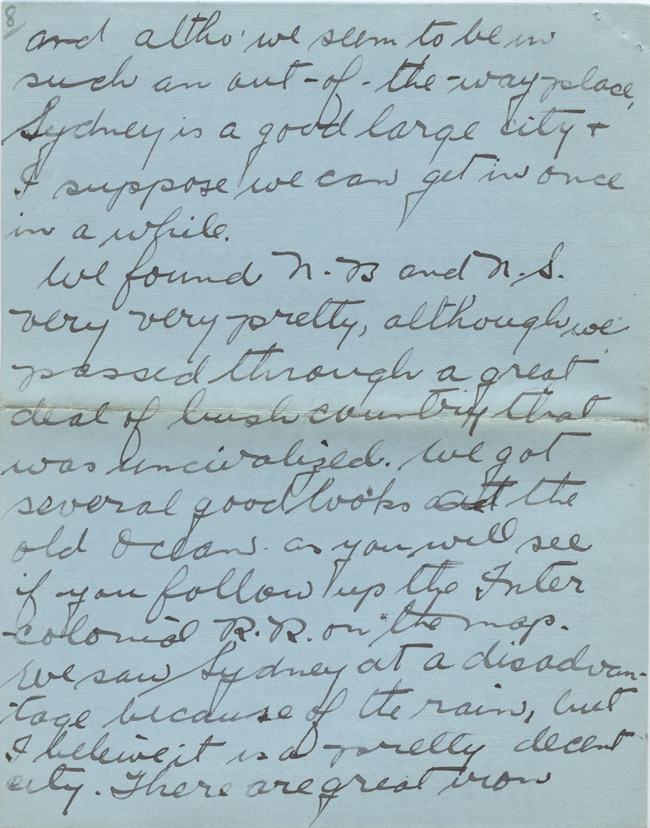 8
and altho' we seem to be in
such an out-of-the-way place,
Sydney is a good large city +
I suppose we can get in once
in a while.
We found N.B and N.S.
very very pretty, although we
passed through a great
deal of bush country that
was uncivalized. We got
several good looks at the
old Ocean. as you will see
if you follow up the Inter
-colonial R.R. on the map.
We saw Sydney at a disadvan-
tage because of the rain, but
I beleive it is a pretty decent
city. There are great iron